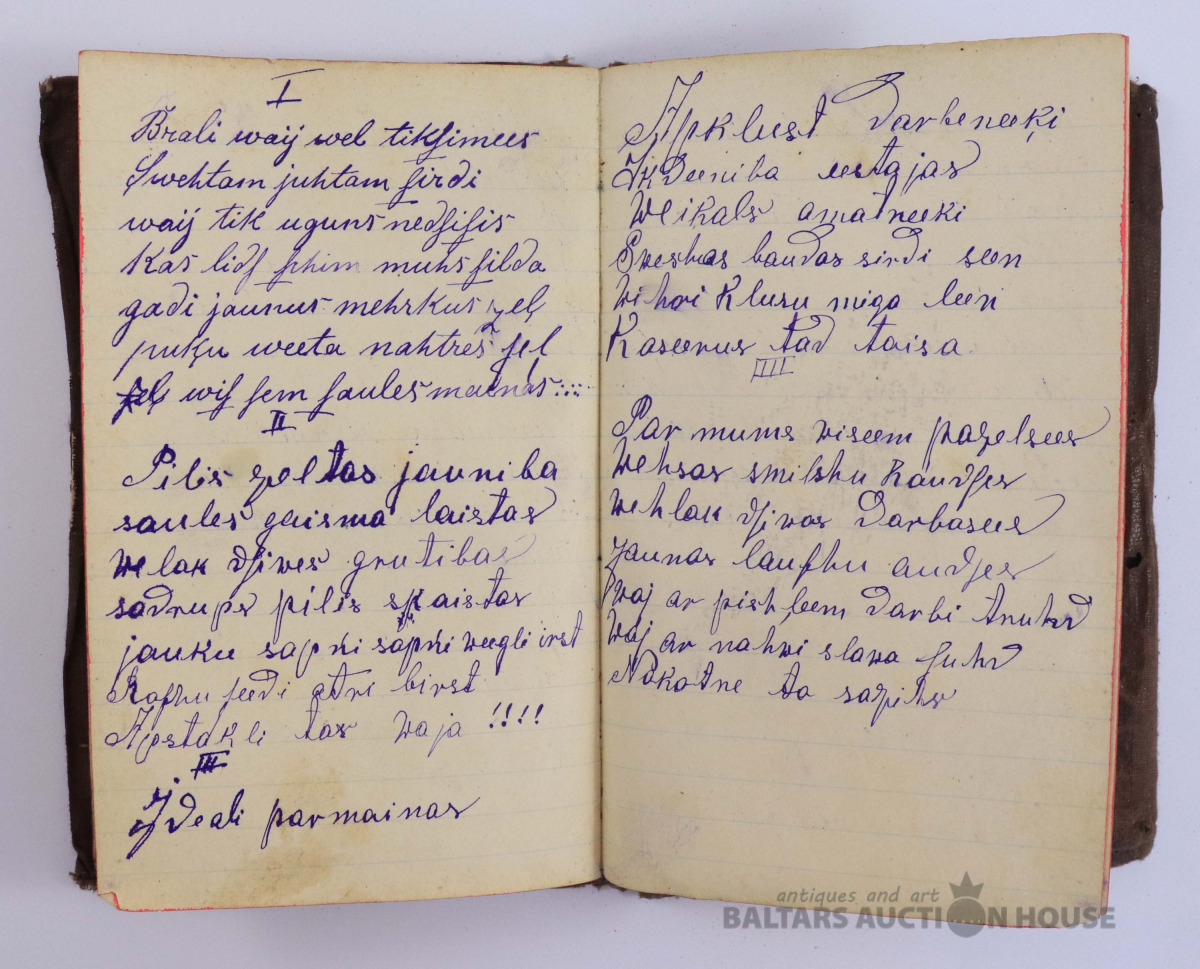 I
Brali waij wel tiksimees
Swehtam juhtam sirdi
waij tik uguns nedsisis
Kas lids schim muhs silda
gadi jaunus mehrkus zel
puku weeta nahtres zel
wis sem saules mainas
II
Pilis zeltas jauniba
saules gaisma laistas
welak dsiwes grutibas
sadrups pilis skaistas
jauku sapņi sapņi weegli irst
Roschu seedi atri birst
Apstakli tas waja !!!!
III
Ideali parmainas
Apklust Darbeneeki
Ikdeeniba eestajas
Weikals amatneeki
Sweshas baudas sirdi seen
Wihri klusu miga leen
Kaseerus tad taisa
IIII
Par mums wiseem pazelsees
Wehsas smilshu Kaudses
wehlak dsiwos Darbosees
Jaunas lauschu audses
Waj ar pishleem Darbi truhd
Waj ar nahwi slawa suhd
Nakotne to sazihs
antiques and art
BALTARS AUCTION HOUSE